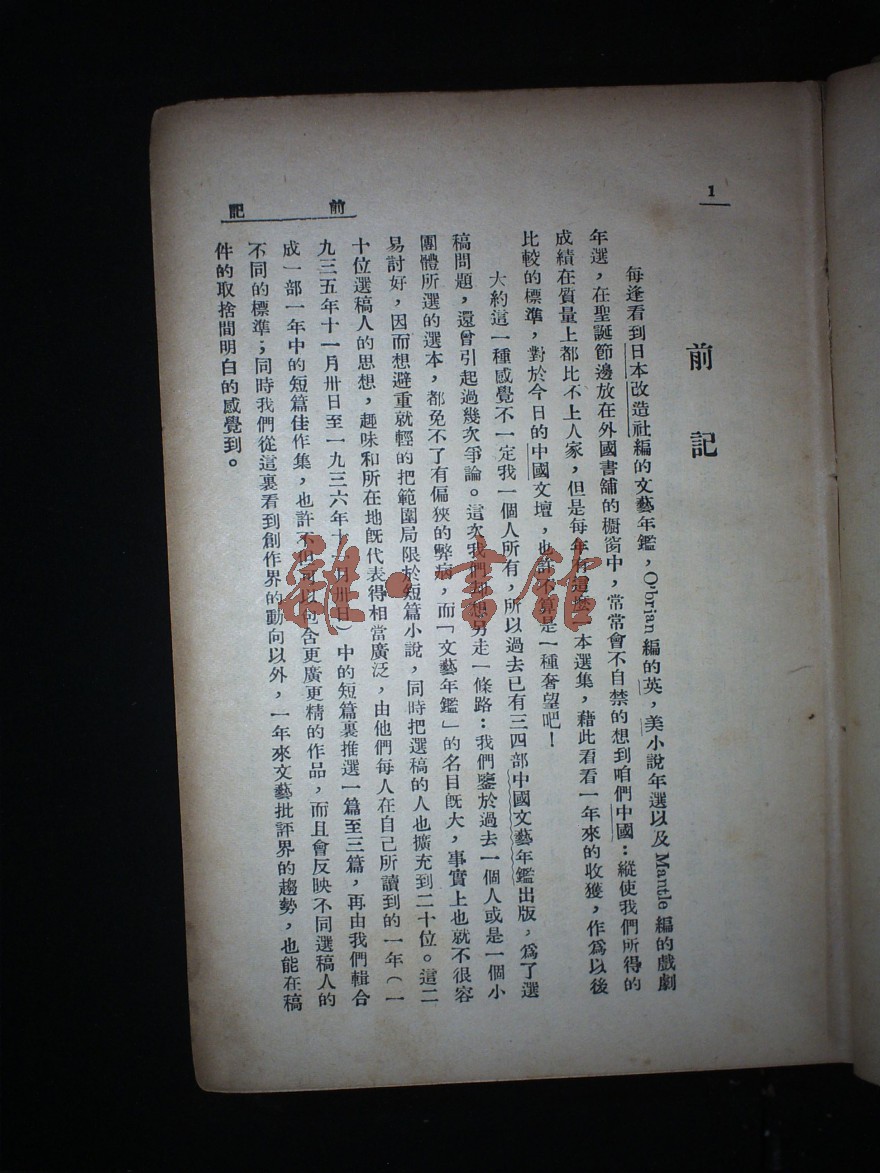 1
前記
前記
每逢看到日本改造社編的文藝年鑑，O'brian 編的英，美小說年選以及 Mantle 編的戲劇
年選，在聖誕節邊放在外國書舖的櫥窗中，常常會不自禁的想到咱們中國：縱使我們所得的
成績在質量上都比不上人家，但是每年有這本選集，藉此看看一年來的收獲，作爲以後
比較的標準，對於今日的中國文壇，也許不算是一種奢望吧！
大約這一種感覺不一定我一個人所有，所以過去已有三四部中國文藝年鑑出版，爲了選
稿問題，還曾引起過幾次爭論。這次我們想另走一條路：我們鑒於過去一個人或是一個小
團體所選的選本，都免不了有偏狹的弊病，而「文藝年鑑」的名目旣大，事實上也就不很容
易討好，因而想避重就輕的把範圍局限於短篇小說，同時把選稿的人也擴充到二十位。這二
十位選稿人的思想，趣味和所在地旣代表得相當廣泛，由他們每人在自己所讀到的一年（一
九三五年十一月卅日至一九三六年十一月卅日）中的短篇裏推選一篇至三篇，再由我們輯合
成一部一年中的短篇佳作集，也許不但可以包含更廣更精的作品，而且會反映不同選稿人的
不同的標準；同時我們從這裏看到創作界的動向以外，一年來文藝批評界的趨勢，也能在稿
件的取捨間明白的感覺到。
雜·書館